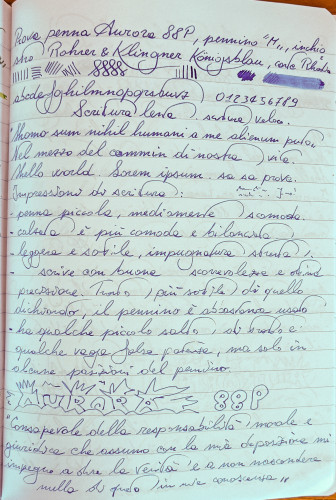 Prova penna Aurora 88P, pennino "M", inchio
stro Rohrer & Klingner Königsblau, carta Rhodia
8888
abcdefghilmnopqrstuvz 0123456789
Scrittura lenta. scrittura veloce.
"Homo sum nihil humani a me alienum puto.
Nel mezzo del cammin di nostra vita.
Hello world. Lorem ipsum. sa sa prova.
Impressioni di scrittura:
- penna piccola, mediamente scomoda.
- calzata è più comoda e bilanciata
- leggera e sottile, impugnatura stretta
- scrive con buona scorrevolezza e
precisione. Tratto più sottile di quello
dichiarato, il pennino è abbastanza usato
- ha qualche piccolo salto di tratto e
qualche vaga falsa partenza, ma solo in
alcune posizioni del pennino.
AURORA 88P
"Consapevole della responsabilità morale e
giuridica che assumo con la mia deposizione mi
impegno a dire la verità e a non nascondere
nulla di quanto in mia conoscenza"